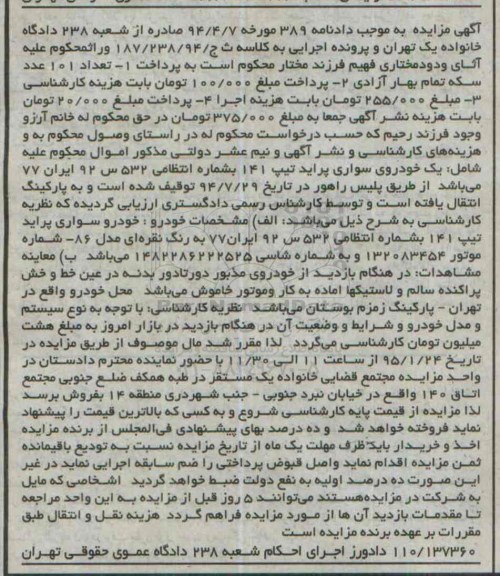 آگهی مزایده به موجب دادنامه ۳۸۹ مورخه ۹۴/۴/۷ صادره از شعبه ۲۳۸ دادگاه
خانواده یک تهران و پرونده اجرایی به کلاسه ث ج/۱۸۷/۲۳۸/۹۴ وراثمحکوم علیه
آثای ودودمختاری فهیم فرزند مختار محکوم است به پرداخت ۱- تعداد ۱۰۱ عدد
سکه تمام بهار آزادی ۲- پرداخت مبلغ ۱۰۰/۰۰۰ تومان بابت هزینه کارشناسی
۳- مبلغ ۲۵۵/۰۰۰ تومان بابت هزینه اجرا ۴- پرداخت مبلغ ۲۰/۰۰۰ تومان
بابت هزینه نشر آگهی جمعا به مبلغ ۳۷۵/۰۰۰ تومان در حق محکوم له خانم آرزو
وجود فرزند رحیم که حسب درخواست محکوم له در راستای وصول محکوم به و
هزینه‌های کارشناسی و نشر آگهی و نیم عشر دولتی مذکور اموال محکوم علیه
شامل: یک خودروی سواری پراید تیپ ۱۴۱ بشماره انتظامی ۵۳۲ س ۹۲ ایران ۷۷
می‌باشد از طریق پلیس راهور در تاریخ ۹۴/۷/۲۹ توقیف شده است و به پارکینگ
انتقال یافته است و توسط کارشناس رسمی دادگستری ارزیابی گردیده که نظریه
کارشناسی به شرح ذیل می‌باشد: الف) مشخصات خودرو : خودرو سواری پراید
تیپ ۱۴۱ بشماره انتظامی ۵۳۲ س ۹۲ ایران۷۷ به رنگ نقره‌ای مدل ۸۶- شماره
موتور ۱۳۲۰۸۳۴۵۴ و به شماره شاسی ۱۴۸۲۲۸۶۲۲۲۵۲۵ می‌باشد ب) معاینه
مشاهدات: در هنگام بازدید از خودروی مذبور دورتادور بدنه در عین خط و خش
پراکنده سالم و لاستیکها اماده به کار وموتور خاموش می‌باشد محل خودرو واقع در
تهران - پارکینگ زمزم بوستان می‌باشد نظریه کارشناسی: با توجه به نوع سیستم
و مدل خودرو و شرایط و وضعیت آن در هنگام بازدید در بازار امروز به مبلغ هشت
میلیون تومان کارشناسی می‌گردد لذا مقرر شد مال موصوف از طریق مزایده در
تاریخ ۹۵/۱/۲۴ از ساعت ۱۱ الی ۱۱/۳۰ با حضور نماینده محترم دادستان در
واحد مزایده مجتمع قضایی خانواده یک مستقر در طبه همکف ضلع جنوبی مجتمع
اتاق ۱۴۰ واقع در خیابان نبرد جنوبی - جنب شهرداری منطقه ۱۴ بفروش برسد
لذا مزایده از قیمت پایه کارشناسی شروع و به کسی که بالاترین قیمت را پیشنهاد
نماید فروخته خواهد شد و ده درصد بهای پیشنهادی فی‌المجلس از برنده مزایده
اخذ و خریدار باید ظرف مهلت یک ماه از تاریخ مزایده نسبت به تودیع باقیمانده
ثمن مزایده اقدام نماید واصل قبوض پرداختی را ضم سابقه اجرایی نماید در غیر
این صورت ده درصد اولیه به نفع دولت ضبط خواهد گردید اشخاصی که مایل
به شرکت در مزایده‌هستند می‌توانند ۵ روز قبل از مزایده به این واحد مراجعه
تا مقدمات بازدید آن ها از مورد مزایده فراهم گردد هزینه نقل و انتقال طبق
مقررات بر عهده برنده مزایده است
۱۱۰/۱۳۷۳۶۰ دادورز اجرای احکام شعبه ۲۳۸ دادگاه عموی حقوقی تهران